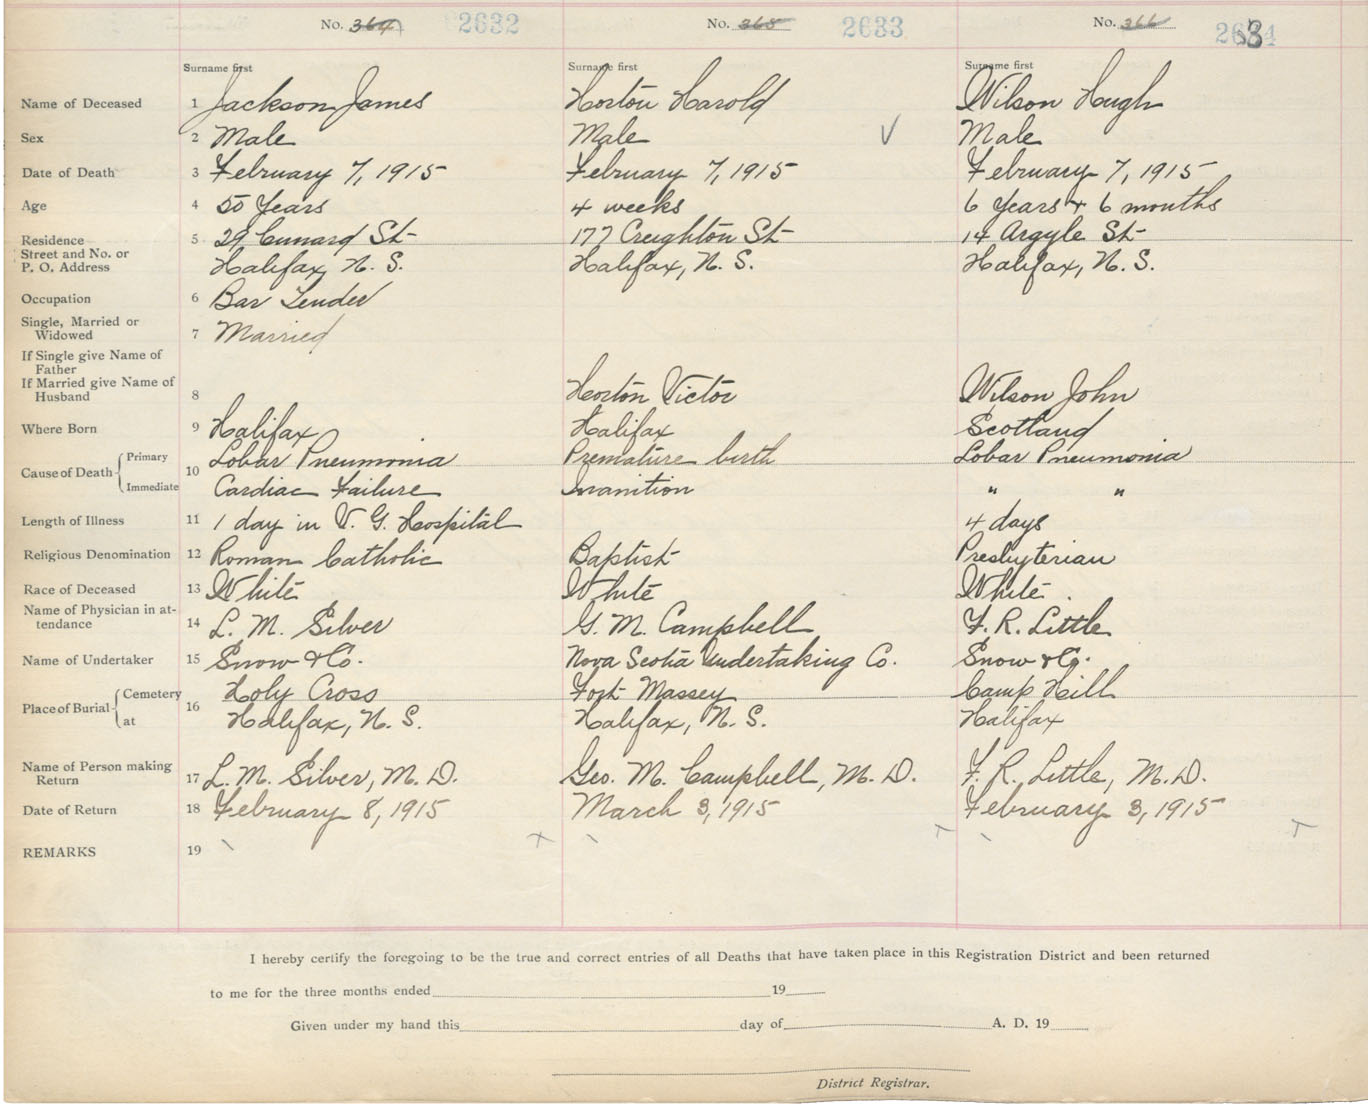 No. 364 2632 No. 365 2633 No. 366
Surname first Surname first Surname first
Name of Deceased 1 Jackson James Horton Harold Wilson Hugh
Sex 2 Male Male Male
Date of Death 3 February 7, 1915 February 7, 1915 February 7, 1915
Age 4 50 Years 4 weeks 6 Years + 6 months
Residence 5 29 Cunard St 177 Creighton St 14 Argyle St
Street and No. or
P. O. Address Halifax, N. S. Halifax, N. S. Halifax, N. S.
Occupation 6 Bar Tender
Single, Married or
Widowed 7 Married
If Single give Name of
Father
If Married give Name of
Husband 8 Horton Victor Wilson John
Where Born 9 Halifax Halifax Scotland
Cause of Death 10 Primary Lobar Pneumonia Premature birth Lobar Pneumonia
Immediate Cardiac Failure Inanition " "
Length of Illness 11 1 day in V. G. Hospital 4 days
Religious Denomination 12 Roman Catholic Baptist Presbyterian
Race of Deceased 13 White White White.
Name of Physician in at-
tendance 14 L. M. Silver G. M. Campbell F. R. Little
Name of Undertaker 15 Snow & Co. Nova Scotia Undertaking Co. Snow & Co.
Place of Burial 16 Cemetery Holy Cross Fort Massey Camp Hill
at Halifax, N. S. Halifax, N. S. Halifax
Name of Person making
Return 17 L. M. Silver, M. D. Geo. M. Campbell, M. D. F. R. Little, M. D.
Date of Return 18 February 8, 1915 March 3, 1915 February 3, 1915
REMARKS 19
I hereby certify the foregoing to be the true and correct entries of all Deaths that have taken place in this Registration District and been returned
to me for the three months ended 19
Given under my hand this day of A. D. 19
District Registrar.